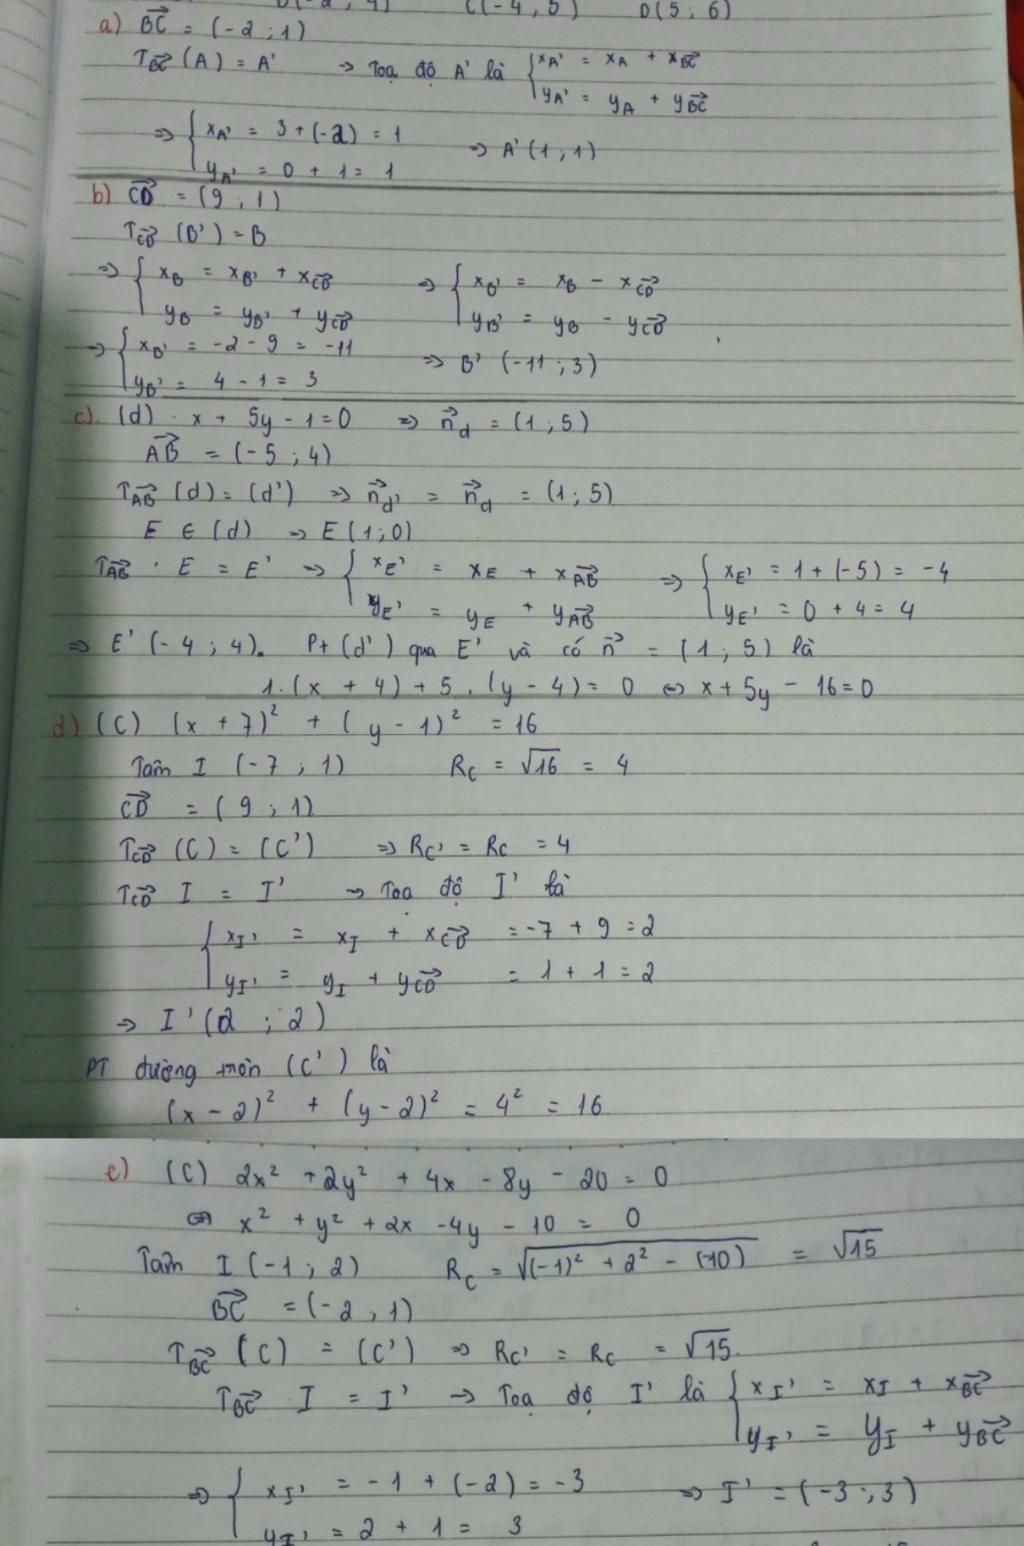 B(-2; 4) C(-4; 5) D(5; 6)
a) $\overrightarrow{BC}$ = (-2 ; 1)
$T_{\overrightarrow{BC}}$ (A) = A' → Toạ độ A' là { $x_{A'}$ = $x_A$ + $x_{\overrightarrow{BC}}$
$y_{A'}$ = $y_A$ + $y_{\overrightarrow{BC}}$
⇒ { $x_{A'}$ = 3 + (-2) = 1
⇒ A' (1 ; 1)
$y_{A'}$ = 0 + 1 = 1
b) $\overrightarrow{CD}$ = (9 ; 1)
$T_{\overrightarrow{CD}}$ (B') = B
⇒ { $x_B$ = $x_{B'}$ + $x_{\overrightarrow{CD}}$ ⇒ { $x_{B'}$ = $x_B$ - $x_{\overrightarrow{CD}}$
$y_B$ = $y_{B'}$ + $y_{\overrightarrow{CD}}$ $y_{B'}$ = $y_B$ - $y_{\overrightarrow{CD}}$
⇒ { $x_{B'}$ = -2 - 9 = -11 ⇒ B' (-11 ; 3)
$y_{B'}$ = 4 - 1 = 3
c). (d) . x + 5y - 1 = 0 ⇒ $\vec{n}_d$ = (1 ; 5)
$\overrightarrow{AB}$ = (-5 ; 4)
$T_{\overrightarrow{AB}}$ (d) = (d') ⇒ $\vec{n}_{d'}$ = $\vec{n}_d$ = (1 ; 5)
E ∈ (d) → E (1 ; 0)
$T_{\overrightarrow{AB}}$ . E = E' ⇒ { $x_{E'}$ = $x_E$ + $x_{\overrightarrow{AB}}$ ⇒ { $x_{E'}$ = 1 + (-5) = -4
$y_{E'}$ = $y_E$ + $y_{\overrightarrow{AB}}$ $y_{E'}$ = 0 + 4 = 4
⇒ E' (-4 ; 4). Pt (d') qua E' và có $\vec{n}$ = (1 ; 5) là
1.(x + 4) + 5 . (y - 4) = 0 ⇔ x + 5y - 16 = 0
d) (C) (x + 7)² + (y - 1)² = 16
Tâm I (-7 ; 1) $R_C$ = √16 = 4
$\overrightarrow{CD}$ = (9 ; 1)
$T_{\overrightarrow{CD}}$ (C) = (C') ⇒ $R_{C'}$ = $R_C$ = 4
$T_{\overrightarrow{CD}}$ I = I' → Toạ độ I' là
{ $x_{I'}$ = $x_I$ + $x_{\overrightarrow{CD}}$ = -7 + 9 = 2
$y_{I'}$ = $y_I$ + $y_{\overrightarrow{CD}}$ = 1 + 1 = 2
⇒ I' (2 ; 2)
PT đường tròn (C') là
(x - 2)² + (y - 2)² = 4² = 16
e) (C) 2x² + 2y² + 4x - 8y - 20 = 0
⇔ x² + y² + 2x - 4y - 10 = 0
Tâm I (-1 ; 2) $R_C$ = √((-1)² + 2² - (-10)) = √15
$\overrightarrow{BC}$ = (-2 , 1)
$T_{\overrightarrow{BC}}$ (C) = (C') ⇒ $R_{C'}$ = $R_C$ = √15.
$T_{\overrightarrow{BC}}$ I = I' → Toạ độ I' là { $x_{I'}$ = $x_I$ + $x_{\overrightarrow{BC}}$
$y_{I'}$ = $y_I$ + $y_{\overrightarrow{BC}}$
⇒ { $x_{I'}$ = -1 + (-2) = -3 ⇒ I' = (-3 ; 3)
$y_{I'}$ = 2 + 1 = 3